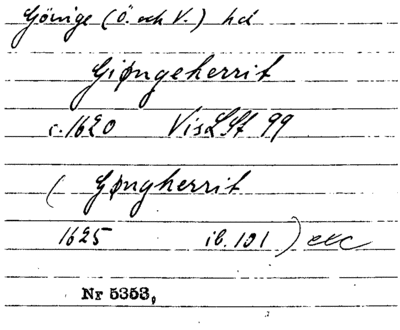 Göinge (Ö. och V.) hd
Giøngeherrit
c. 1620 VisLSt 99
( Gøngherrit
1625 ib. 101 ) etc
Nr 5353,